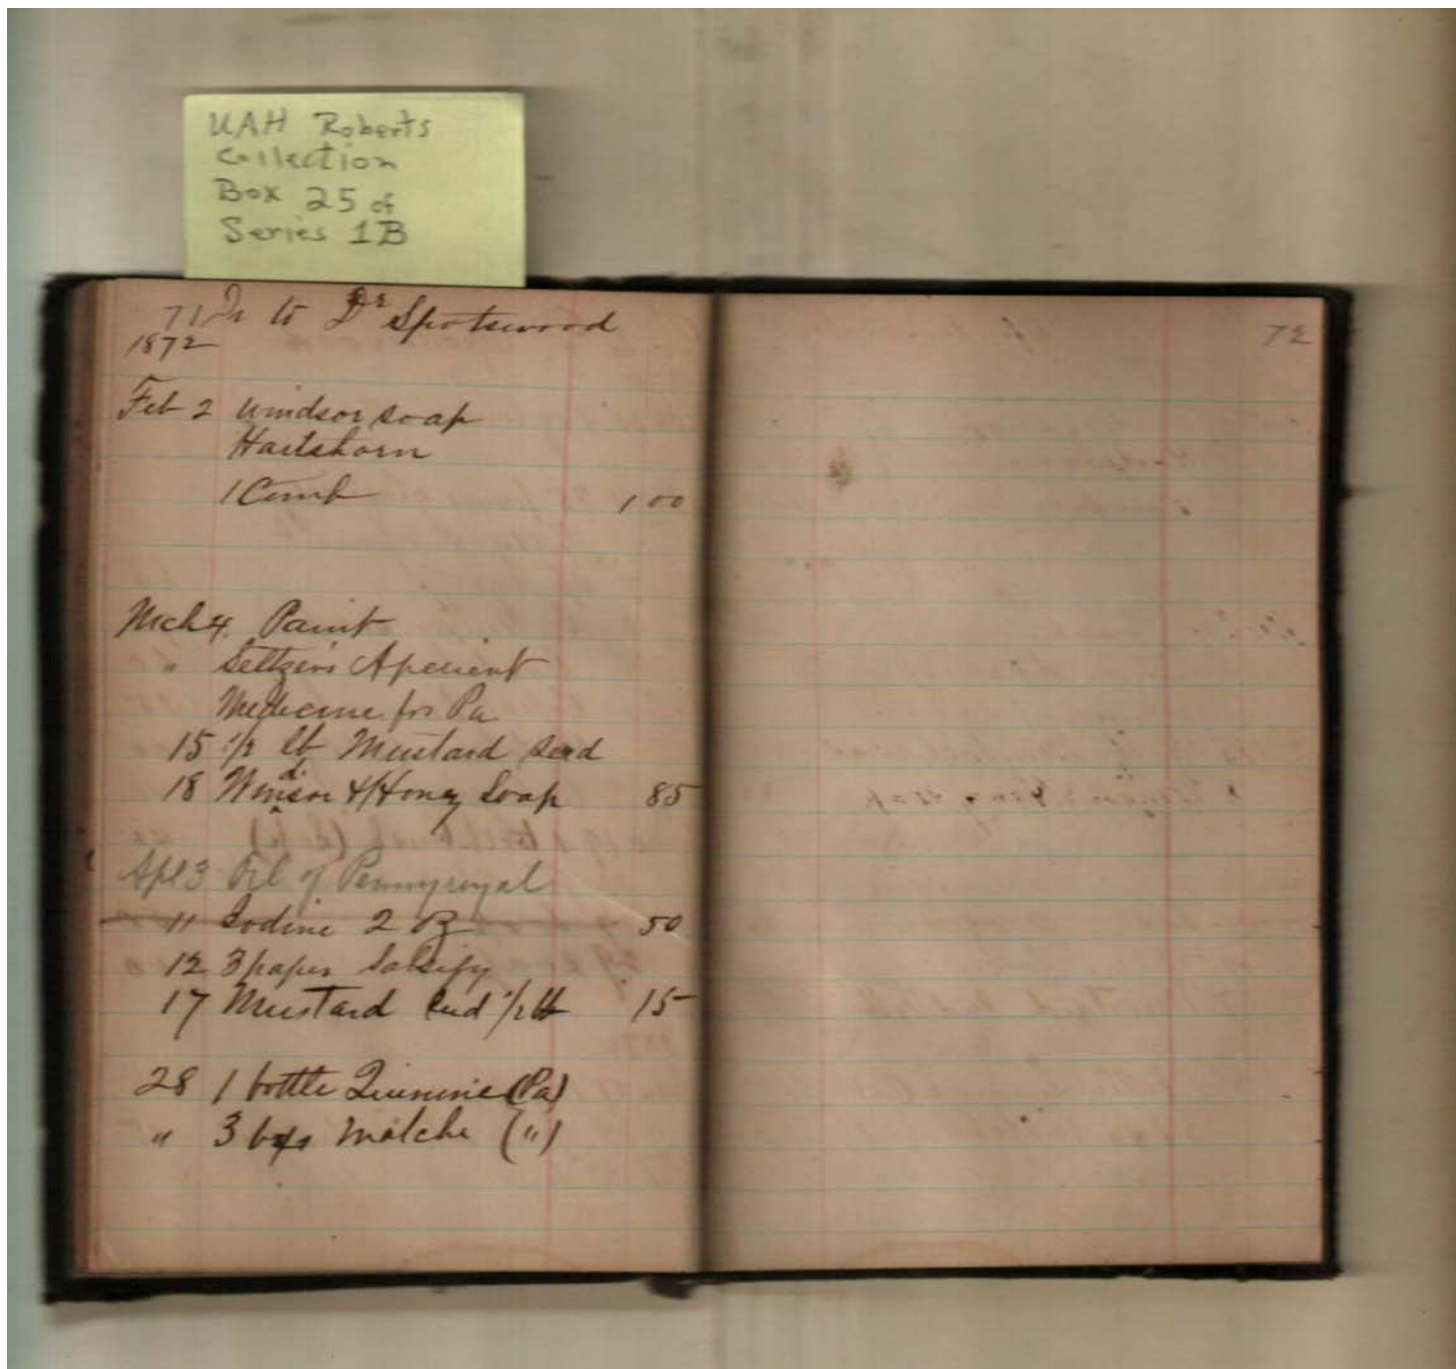 UAH Roberts
Collection
Box 25 of
Series 1B
71 Dr to Dr Spotswood
1872
Feb 2 Windsor soap
Hartshorn
1 Comb 1 00
Mch 4. Paint
" Seltzers Aperient
Medicine for Pa
15 1/2 lb Mustard seed
18 Windsor & Honey Soap 85
Apl 3 Oil of Pennyroyal
11 Iodine 2 oz 50
12 3 papers Salsify
17 Mustard seed 1/2 lb 15
28 1 bottle Quinine (Pa)
" 3 bxs Matche (")
72